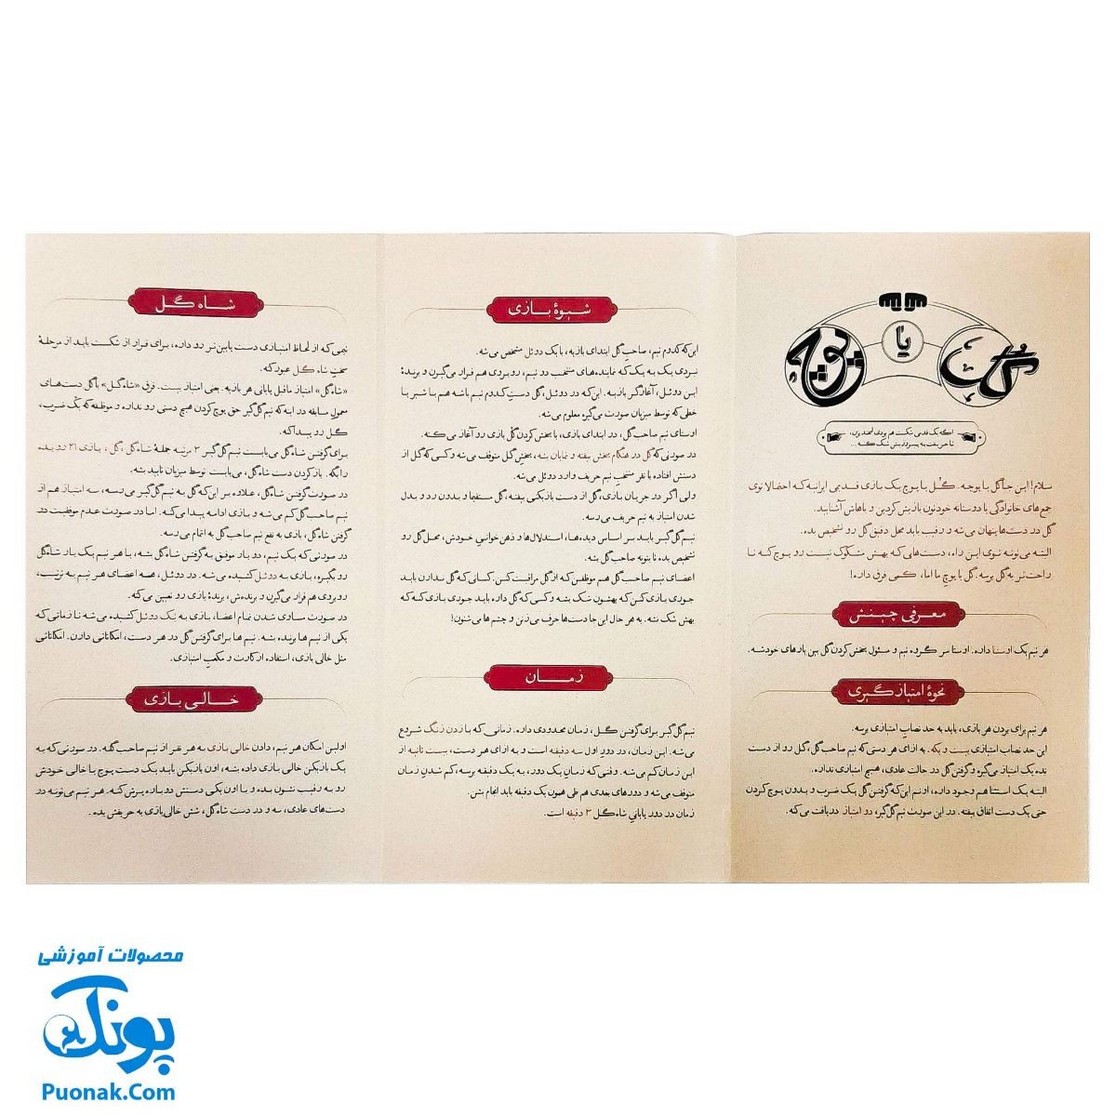 گل یا پوچ
اگه یک قدمی شکست هم بودی لبخند بزن،
تا حریف به پیروزیش شک کنه...
سلام! این جا گل یا پوچه. گُل یا پوچ یک بازی قدیمی ایرانیه که احتمالا توی
جمع‌های خانوادگی یا دوستانه خودتون بازیش کردین و باهاش آشنایید.
گل در دست‌ها پنهان می‌شه و رقیب باید محل دقیق گل رو تشخیص بده.
البته می‌تونه توی این راه، دست‌هایی که بهش مشکوک نیست رو پوچ کنه تا
راحت‌تر به گل برسه. گل یا پوچ ما اما، کمی فرق داره!
معرفی چینش
هر تیم یک اوستا داره. اوستا سر گروه تیم و مسئول پخش کردن گل بین یارهای خودشه.
نحوهٔ امتیازگیری
هر تیم برای بردن هر بازی، باید به حد نصاب امتیازی برسه.
این حد نصاب امتیازی بیست و یکه. به ازای هر دستی که تیم صاحب گل، گل رو از دست
نده یک امتیاز می‌گیره و گرفتن گل در حالت عادی، هیچ امتیازی نداره.
البته یک استثنا هم وجود داره، اونم این‌که گرفتن گل یک ضرب و بدون پوچ کردن
حتی یک دست اتفاق بیفته. در این صورت تیم گل‌گیر، دو امتیاز دریافت می‌کنه.
شیوهٔ بازی
این‌که کدوم تیم، صاحبِ گل ابتدای بازیه، با یک دوئل مشخص می‌شه.
نبردی یک به یک که نماینده‌های منتخب دو تیم، روبروی هم قرار می‌گیرن و برندهٔ
این دوئل، آغازگر بازیه. این‌که در دوئل، گل دستِ کدوم تیم باشه هم با شیر یا
خطی که توسط میزبان صورت می‌گیره معلوم می‌شه.
اوستای تیم صاحب گل، در ابتدای بازی، با پخش کردن گُل بازی رو آغاز می‌کنه.
در صورتی‌که گل در هنگام پخش بیفته و نمایان بشه، پخشِ گل متوقف می‌شه و کسی که گل از
دستش افتاده با نفر منتخبِ تیم حریف وارد دوئل می‌شه.
ولی اگر در جریان بازی گل از دست بازیکنی بیفته گل مستقیما و بدون رد و بدل
شدن امتیاز به تیم حریف می‌رسه.
تیم گل‌گیر باید بر اساس دیده‌ها، استدلال‌ها و ذهن‌خوانیِ خودش، محل گل رو
تشخیص بده تا بتونه صاحب گل بشه.
اعضای تیم صاحب گل هم موظفن که از گل مراقبت کنن. کسانی که گل ندارن باید
جوری بازی کنن که بهشون شک بشه و کسی که گل داره باید جوری بازی کنه که
بهش شک نشه. به هر حال این جا دست‌ها حرف می‌زنن و چشم‌ها می‌شنون!
زمان
تیم گل‌گیر برای گرفتن گل، زمان محدودی داره. زمانی که با زدن زنگ شروع
می‌شه. این زمان، در دورِ اول سه دقیقه است و به ازای هر دست، بیست ثانیه از
این زمان کم می‌شه. وقتی که زمانِ یک دور، به یک دقیقه برسه، کم شدنِ زمان
متوقف می‌شه و دورهای بعدی هم طی همون یک دقیقه باید انجام بشن.
زمان در دور پایانیِ شاه گل ۳ دقیقه است.
شاه گل
تیمی که از لحاظ امتیازی دست پایین‌تر رو داره، برای فرار از شکست باید از مرحلهٔ
سختِ شاه گل عبور کنه.
«شاه گل» امتیاز ماقبل پایانی هر بازیه. یعنی امتیاز بیست. فرق «شاه گل» با گل دست‌های
معمولِ مسابقه در اینه که تیم گل‌گیر حق پوچ کردن هیچ دستی رو نداره و موظفه که یک ضرب،
گل رو پیدا کنه.
برای گرفتن شاه گل می‌بایست تیم گل‌گیر ۳ مرتبه جملهٔ شاه گل، گل، بازی ۲۱ رو بده
را بگه. باز کردن دست شاه گل، می‌بایست توسط میزبان تایید بشه.
در صورت گرفتن شاه گل، علاوه بر این‌که گل به تیم گل‌گیر می‌رسه، سه امتیاز هم از
تیم صاحب گل کم می‌شه و بازی ادامه پیدا می‌کنه. اما در صورت عدم موفقیت در
گرفتن شاه گل، بازی به نفع تیم صاحب گل به اتمام می‌رسه.
در صورتی که یک تیم، دو بار موفق به گرفتن شاه گل بشه، یا هر تیم یک بار شاه گل
رو بگیره، بازی به دوئل کشیده می‌شه. در دوئل، همه اعضای هر تیم به ترتیب،
روبروی هم قرار می‌گیرن و برنده‌ش، برندهٔ بازی رو تعیین می‌کنه.
در صورت مساوی شدن تمام اعضا، بازی به تک دوئل کشیده می‌شه تا زمانی که
یکی از تیم‌ها برنده بشه. تیم‌ها برای گرفتن گل در هر دست، امکاناتی دارن. امکاناتی
مثل خالی بازی، استفاده از کارت و مکعب امتیازی.
خالی بازی
اولین امکان هر تیم، دادن خالی بازی به هر نفر از تیم صاحب گله. در صورتی که به
یک بازیکن خالی بازی داده بشه، اون بازیکن باید یک دست پوچ یا خالی خودش
رو به رقیب نشون بده و با اون یکی دستش دوباره پرش کنه. هر تیم می‌تونه در
دست‌های عادی، سه و در دست شاه گل، شش خالی‌بازی به حریفش بده.
محصولات آموزشی
پونک
Puonak.Com